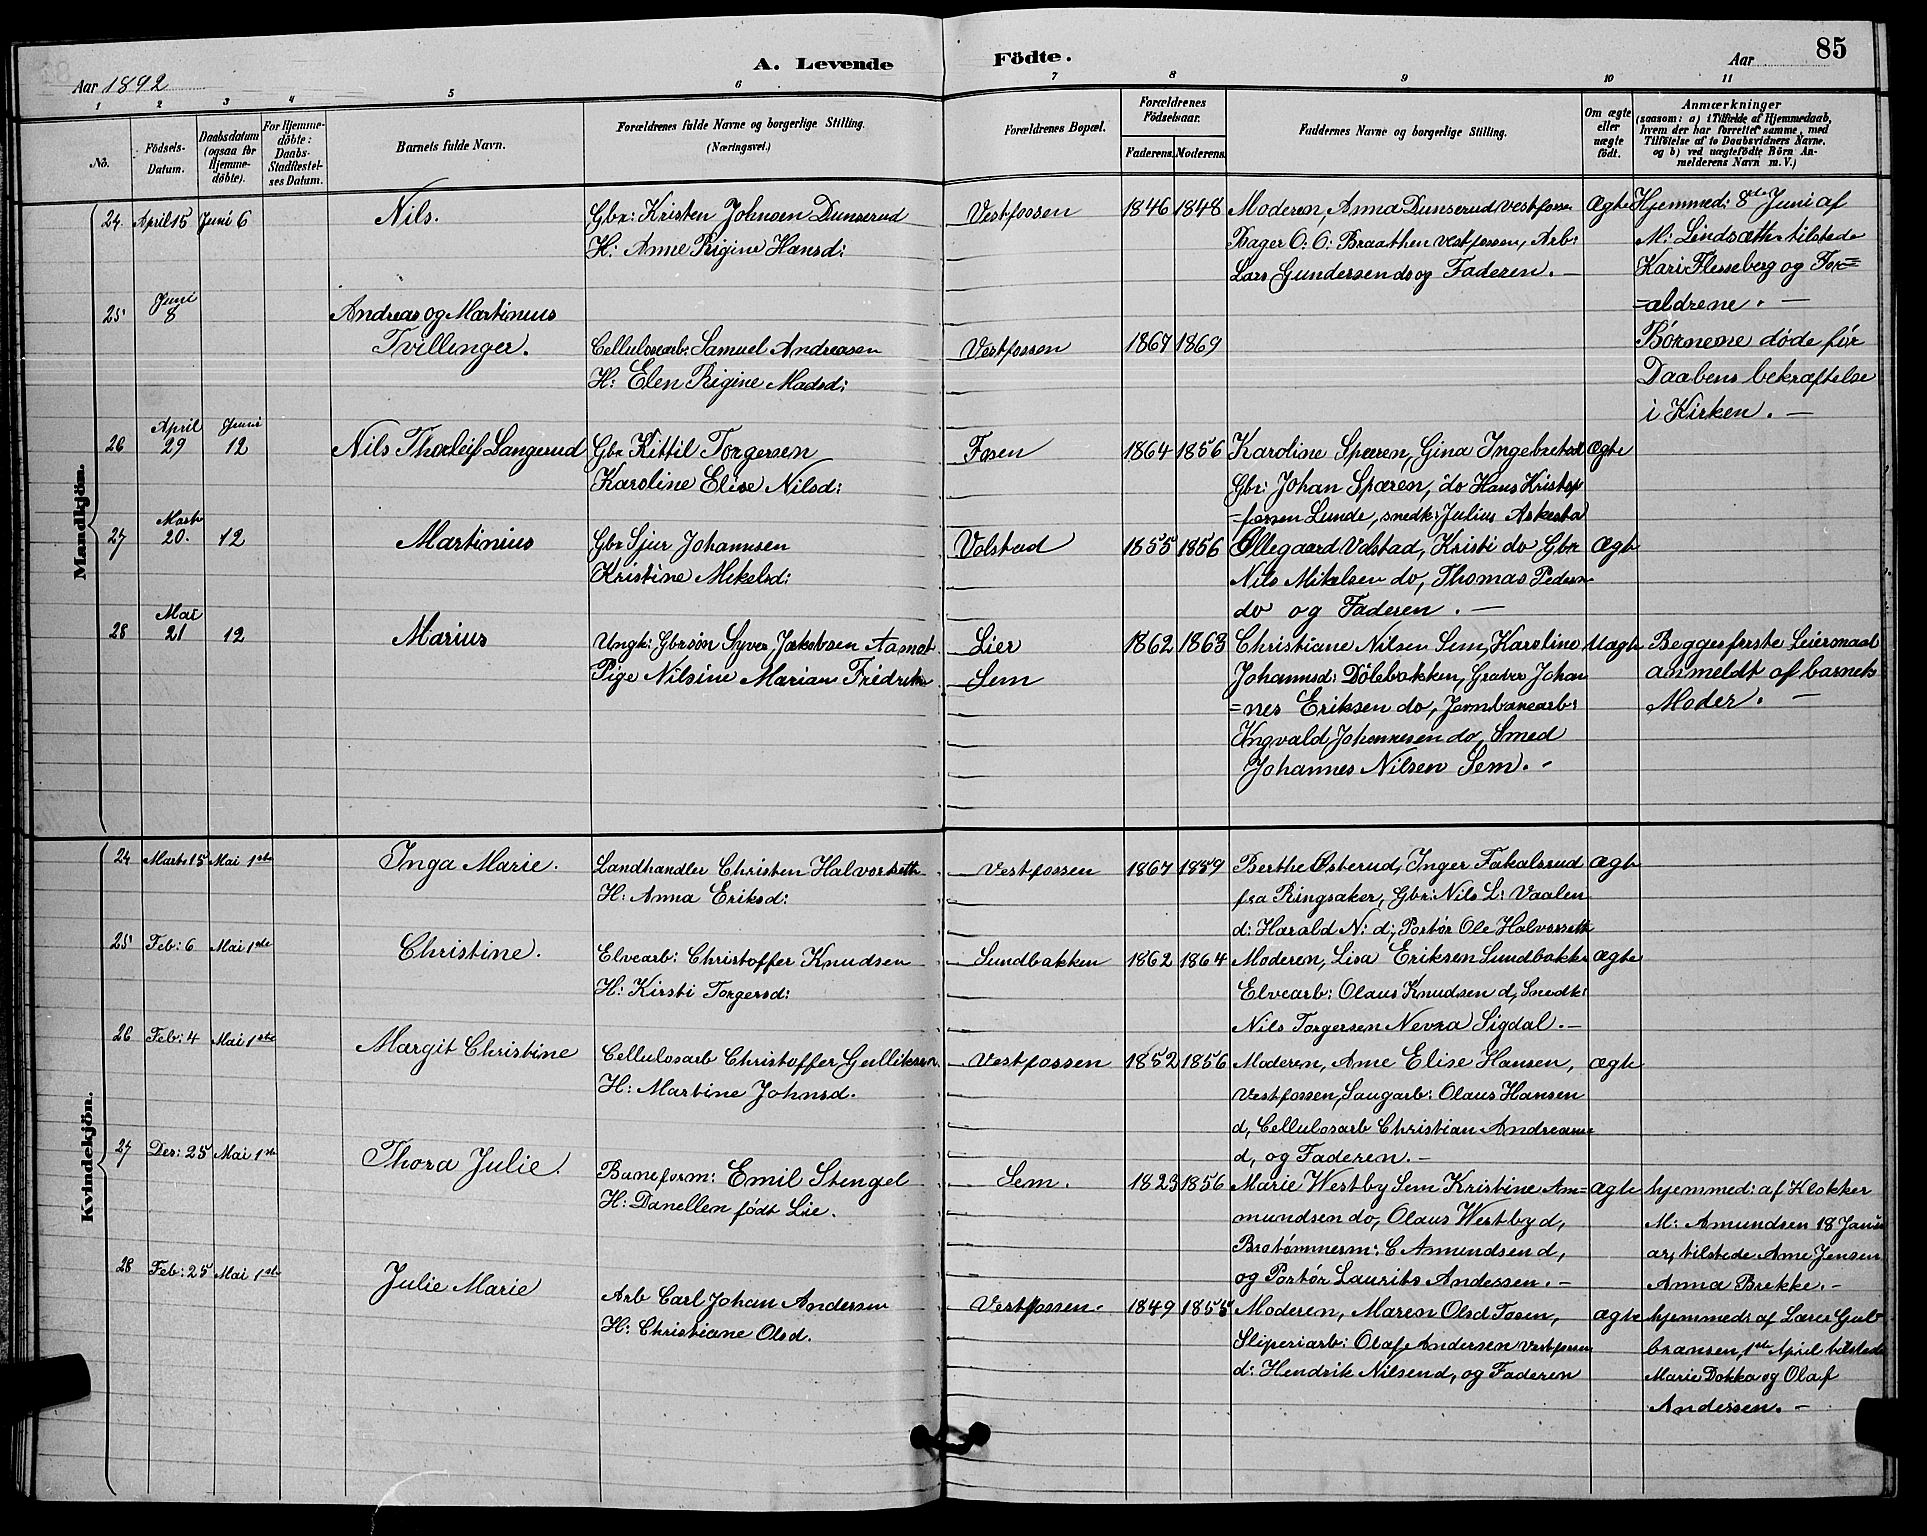 85
A. Levende Födte.
Aar 1892
Aar
1 2 3 4 5 6 7 8 9 10 11
No.
Födsels-Datum.
Daabsdatum (ogsaa for Hjemme-döbte).
For Hjemme-döbte: Daabs-Stadfæstel-ses Datum.
Barnets fulde Navn.
Forældrenes fulde Navne og borgerlige Stilling.
(Næringsvei.)
Forældrenes Bopæl.
Forældrenes Födselsaar.
Faderens. Moderens.
Faddernes Navne og borgerlige Stilling.
Om ægte eller uægte födt.
Anmærkninger
(saasom: a) i Tilfælde af Hjemmedaab, hvem der har forrettet samme, med Tilföielse af to Daabsvidners Navne, og b) ved uægtefödte Börn An-melderens Navn m. V.)
Mandkjön.
24. April 15 Juni 6 Nils. Gbr: Kristen Johnsen Dunserud Vestfossen 1846 1848 Moderen, Anna Dunserud, Vestfosse Ægte Hjemmed: 8de Juni af
H: Anne Rigine Hansd: Bager O: O: Braathen Vestfossen, Arb: M: Lindsæth tilstede
Lars Gundersen do og Faderen. — Kari Flesseberg og For=
=ældrene. —
25 Juni 8 Andreas og Martinius
Tvillinger. Cellulosearb: Samuel Andreasen Vestfossen 1867 1869 Børnene døde før
H: Elen Rigine Madsd: Daabens bekræftelse
i Kirken. —
26 April 29 Juni 12 Nils Thorleif Langerud Gbr Kittil Torgersen Fosen 1864 1856 Karoline Spæren, Gina Ingebretsd Ægte
Karoline Elise Nilsd: Gbr: Johan Spæren, do Hans Kristof
=fersen Lunde, smedk: Julius
27 Marts 20. 12 Martinius Gbr Sjur Johannsen Volstad 1855 1856 Ollegaard Volstad, Kristi do Gbr Ægte
Kristine Mikelsd: Nils Mikelsen do, Thomas Peders
do og Faderen. —
28 Mai 21 12 Marius Ungk: Gbrsøn Syver Jakobsen Aamot Lier 1862 1863 Christiane Nilsen Sem, Karoline Uægte Begges første Leiermaal
Pige Nilsine Marian Fredrik Sem Johannsd: Dølebakken, Graver Johan anmeldt af barnets
=nes Eriksen do, Jernbanearb: Moder. —
Ingvald Johannesen do, Smed
Johannes Nilsen Sem. -
Kvindekjön.
24 Marts 15 Mai 1ste Inga Marie. Landhandler Christen Halvorseth Vestfossen 1867 1859 Berthe Østerud, Inger Fakalsrud ægte
H: Anna Eriksd: fra Ringsaker, Gbr: Nils L: Vaalen
d: Harald N: d:, Portør Ole Halvorseth
25 Feb: 6 Mai 1ste Christine. Elvearb: Christoffer Knudsen Sundbakken 1862 1864 Moderen, Lisa Eriksen Sundbakke ægte
H: Kirsti Torgersd: Elvearb: Olaus Knudsen d, Smedk:
Nils Torgersen Nevra Sigdal. —
26 Feb: 4 Mai 1ste Margit Christine Cellulosarb Christoffer Gulliksen Vestfossen 1852 1856 Moderen, Anne Elise Hansen, ægte
H: Martine Johnsd. Vestfossen, Saugarb: Olaus Hansen
d, Cellulosarb Christian Andreasen
d, og Faderen. —
27 Des: 25 Mai 1ste Thora Julie. Baneform: Emil Stengel Sem. 1823 1856 Marie Westby Sem Kristine Am= ægte hjemmed: af Klokker
H: Danellen født Lie. mundsen do, Olaus Westby d, M: Amundsen 18 Janu
Brotømmerm: C Amundsen d, ar, tilstede Anne Jensen
og Portør Laurits Andersen. — Anna Brekke. —
28 Feb: 25 Mai 1ste Julie Marie Arb Carl Johan Andersen Vestfossen. 1849 1855 Moderen, Maren Olsd Fosen, ægte hjemmed: af Lærer Gul
H: Christiane Olsd. Sliperiarb: Olaf Andersen Vestfossen bransen, 1ste April tilstede
d: Hendrik Nilsen d, og Faderen Marie Dokka og Olaf
Andersen. —